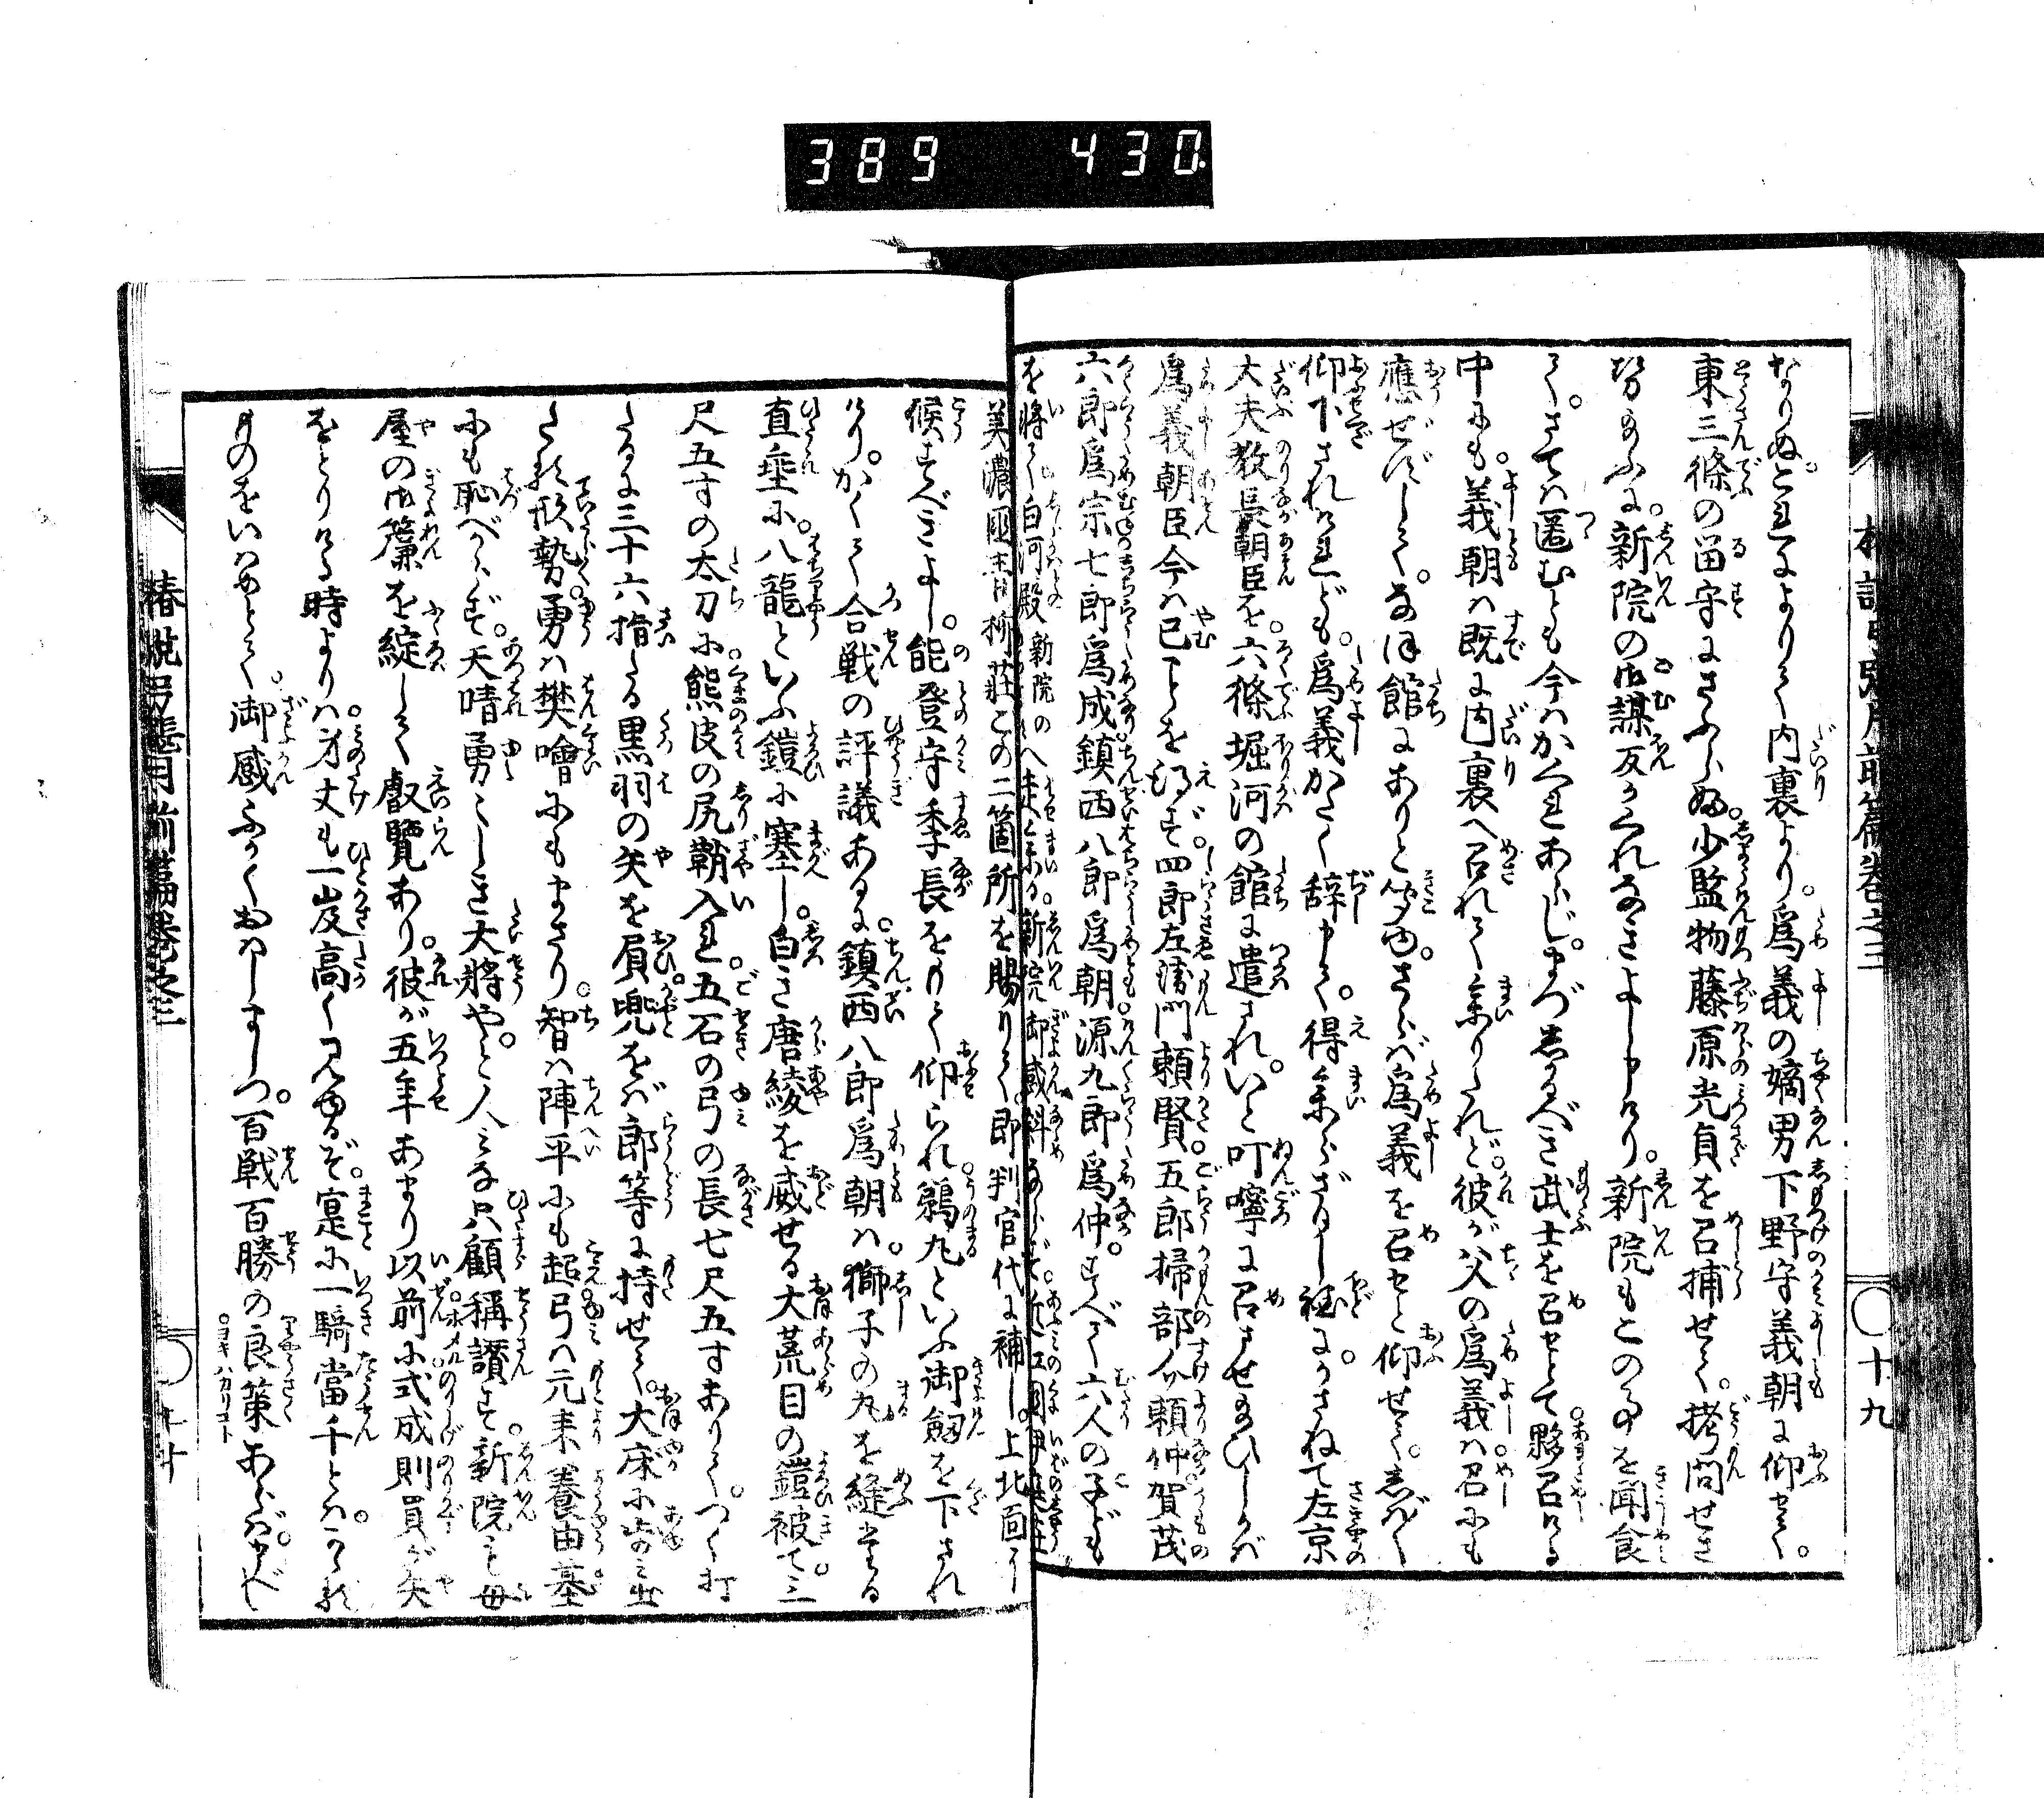 389 430
なりぬ。これによりて内裏より。爲義の嫡男下野守義朝に仰せて。
東三條の留守にさふらふ。少監物藤原光貞を召捕せて。拷問せさ
給ふに。新院の御謀反かくれなきよし申けり。新院もこの事を聞食
て。さては匿むとも今はかくれあらじ。まづしかるべき武士を召せとて夥召ける
中にも。義朝は既に内裏へ召れて參りたれど。彼が父の爲義は召にも
應ぜずして。なほ館にありと聞ゆ。さらば爲義を召せと仰せて。しばしば
仰下されけれども。爲義かたく辞申て。得參らざりし程に。かさねて左京
大夫教長朝臣を。六條堀河の館に遣され。いと叮嚀に召させ給ひしかば
爲義朝臣今は已ことを得ず。四郎左衞門頼賢。五郎掃部介頼仲。賀茂
六郎爲宗。七郎爲成。鎮西八郎爲朝。源九郎爲仲。すべて六人の子ども
を將て。白河殿新院のへ走參る。新院御感斜ならず。近江國伊庭莊
美濃國青柳莊この二箇所を賜りて。即判官代に補し。上北面に
候すべきよし。能登守季長をもて仰られ。鵜丸といふ御劔を下され
けり。かくて合戦の評議あるに。鎮西八郎爲朝は。獅子の丸を縫たる
直垂に。八龍といふ鎧に塞し。白き唐綾を威せる大荒目の鎧被て。三
尺五寸の太刀に。熊皮の尻鞘入れ。五石の弓の長七尺五寸ありて。つく打
たるに三十六指たる黒羽の矢を屓。兜をば郎等に持せて。大床に歩み出
たる形勢。勇は樊噲にもまさり。智は陣平にも超。弓は元来養由基
にも恥べからず。天晴勇々しき大將やと。人みな只顧稱讃す。新院も毎
屋の御簾を綻して叡覽あり。彼が五年あまり以前に。式成則員が矢
をとりける時よりは。身丈も一岌高く見ゆるぞ。寔に一騎當千とはかゝる
ものをいはめとて。御感ふかくおはしましつ。百戦百勝の良策あらば。申べ
ヨキハカリコト
椿説弓張月前篇卷之三
十九
椿説弓張月前篇卷之三